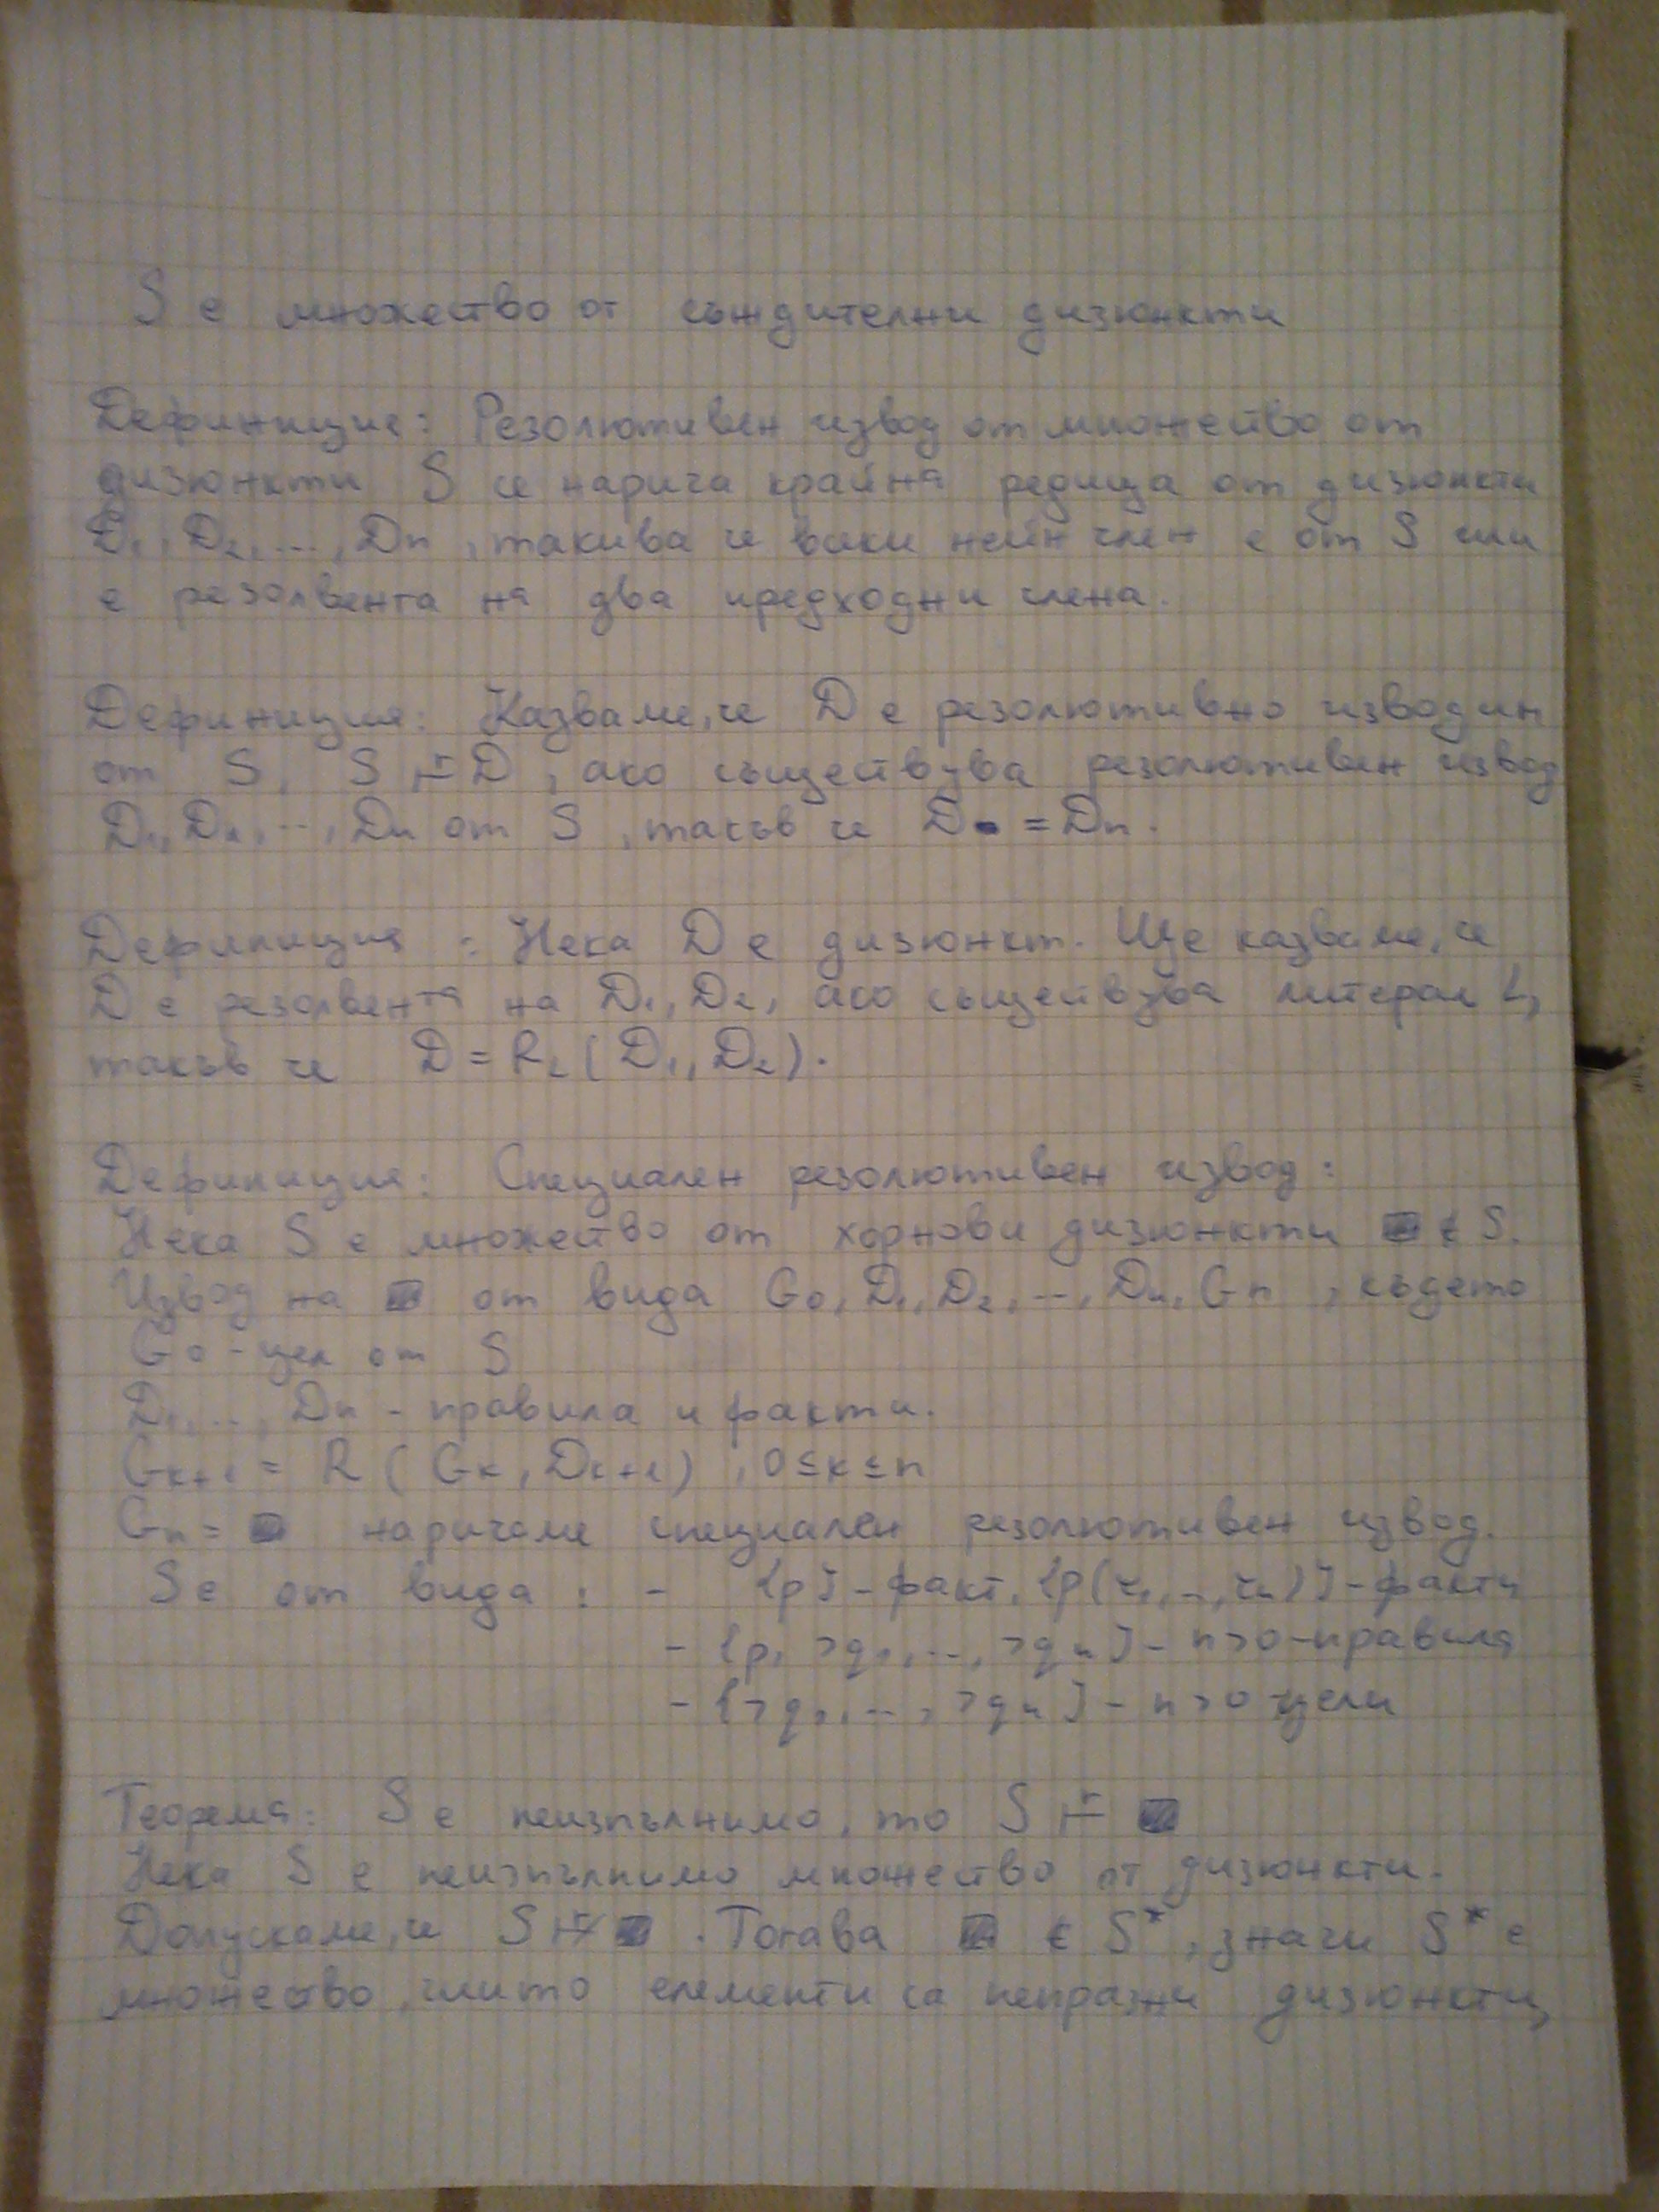 S е множество от съждителни дизюнкти
Дефиниция: Резолютивен извод от множество от
дизюнкти S се нарича крайна редица от дизюнкти
D₁, D₂, ..., Dn, такива че всеки неин член е от S или
е резолвента на два предходни члена.
Дефиниция: Казваме, че D е резолютивно изводим
от S, S ⊢ʳ D, ако съществува резолютивен извод
D₁, D₂, ..., Dn от S, такъв че D = Dn.
Дефиниция : Нека D е дизюнкт. Ще казваме, че
D е резолвента на D₁, D₂, ако съществува литерал L,
такъв че D = R_L(D₁, D₂).
Дефиниция: Специален резолютивен извод:
Нека S е множество от хорнови дизюнкти ■ ∉ S.
Извод на ■ от вида G₀, D₁, D₂, ..., Dn, Gn, където
G₀ - цел от S
D₁, ..., Dn - правила и факти.
Gk+1 = R(Gk, Dk+1), 0≤k≤n
Gn = ■ наричаме специален резолютивен извод.
S е от вида : - {p} - факт, {p(τ₁, .., τn)} - факти
- {p, ¬q₁, ..., ¬qn} - n>0 - правила
- {¬q₁, ..., ¬qn} - n>0 цели
Теорема: S е неизпълнимо, то S ⊢ʳ ■
Нека S е неизпълнимо множество от дизюнкти.
Допускаме, че S ⊬ʳ ■. Тогава ■ ∉ S*, значи S* е
множество, чиито елементи са непразни дизюнкти,